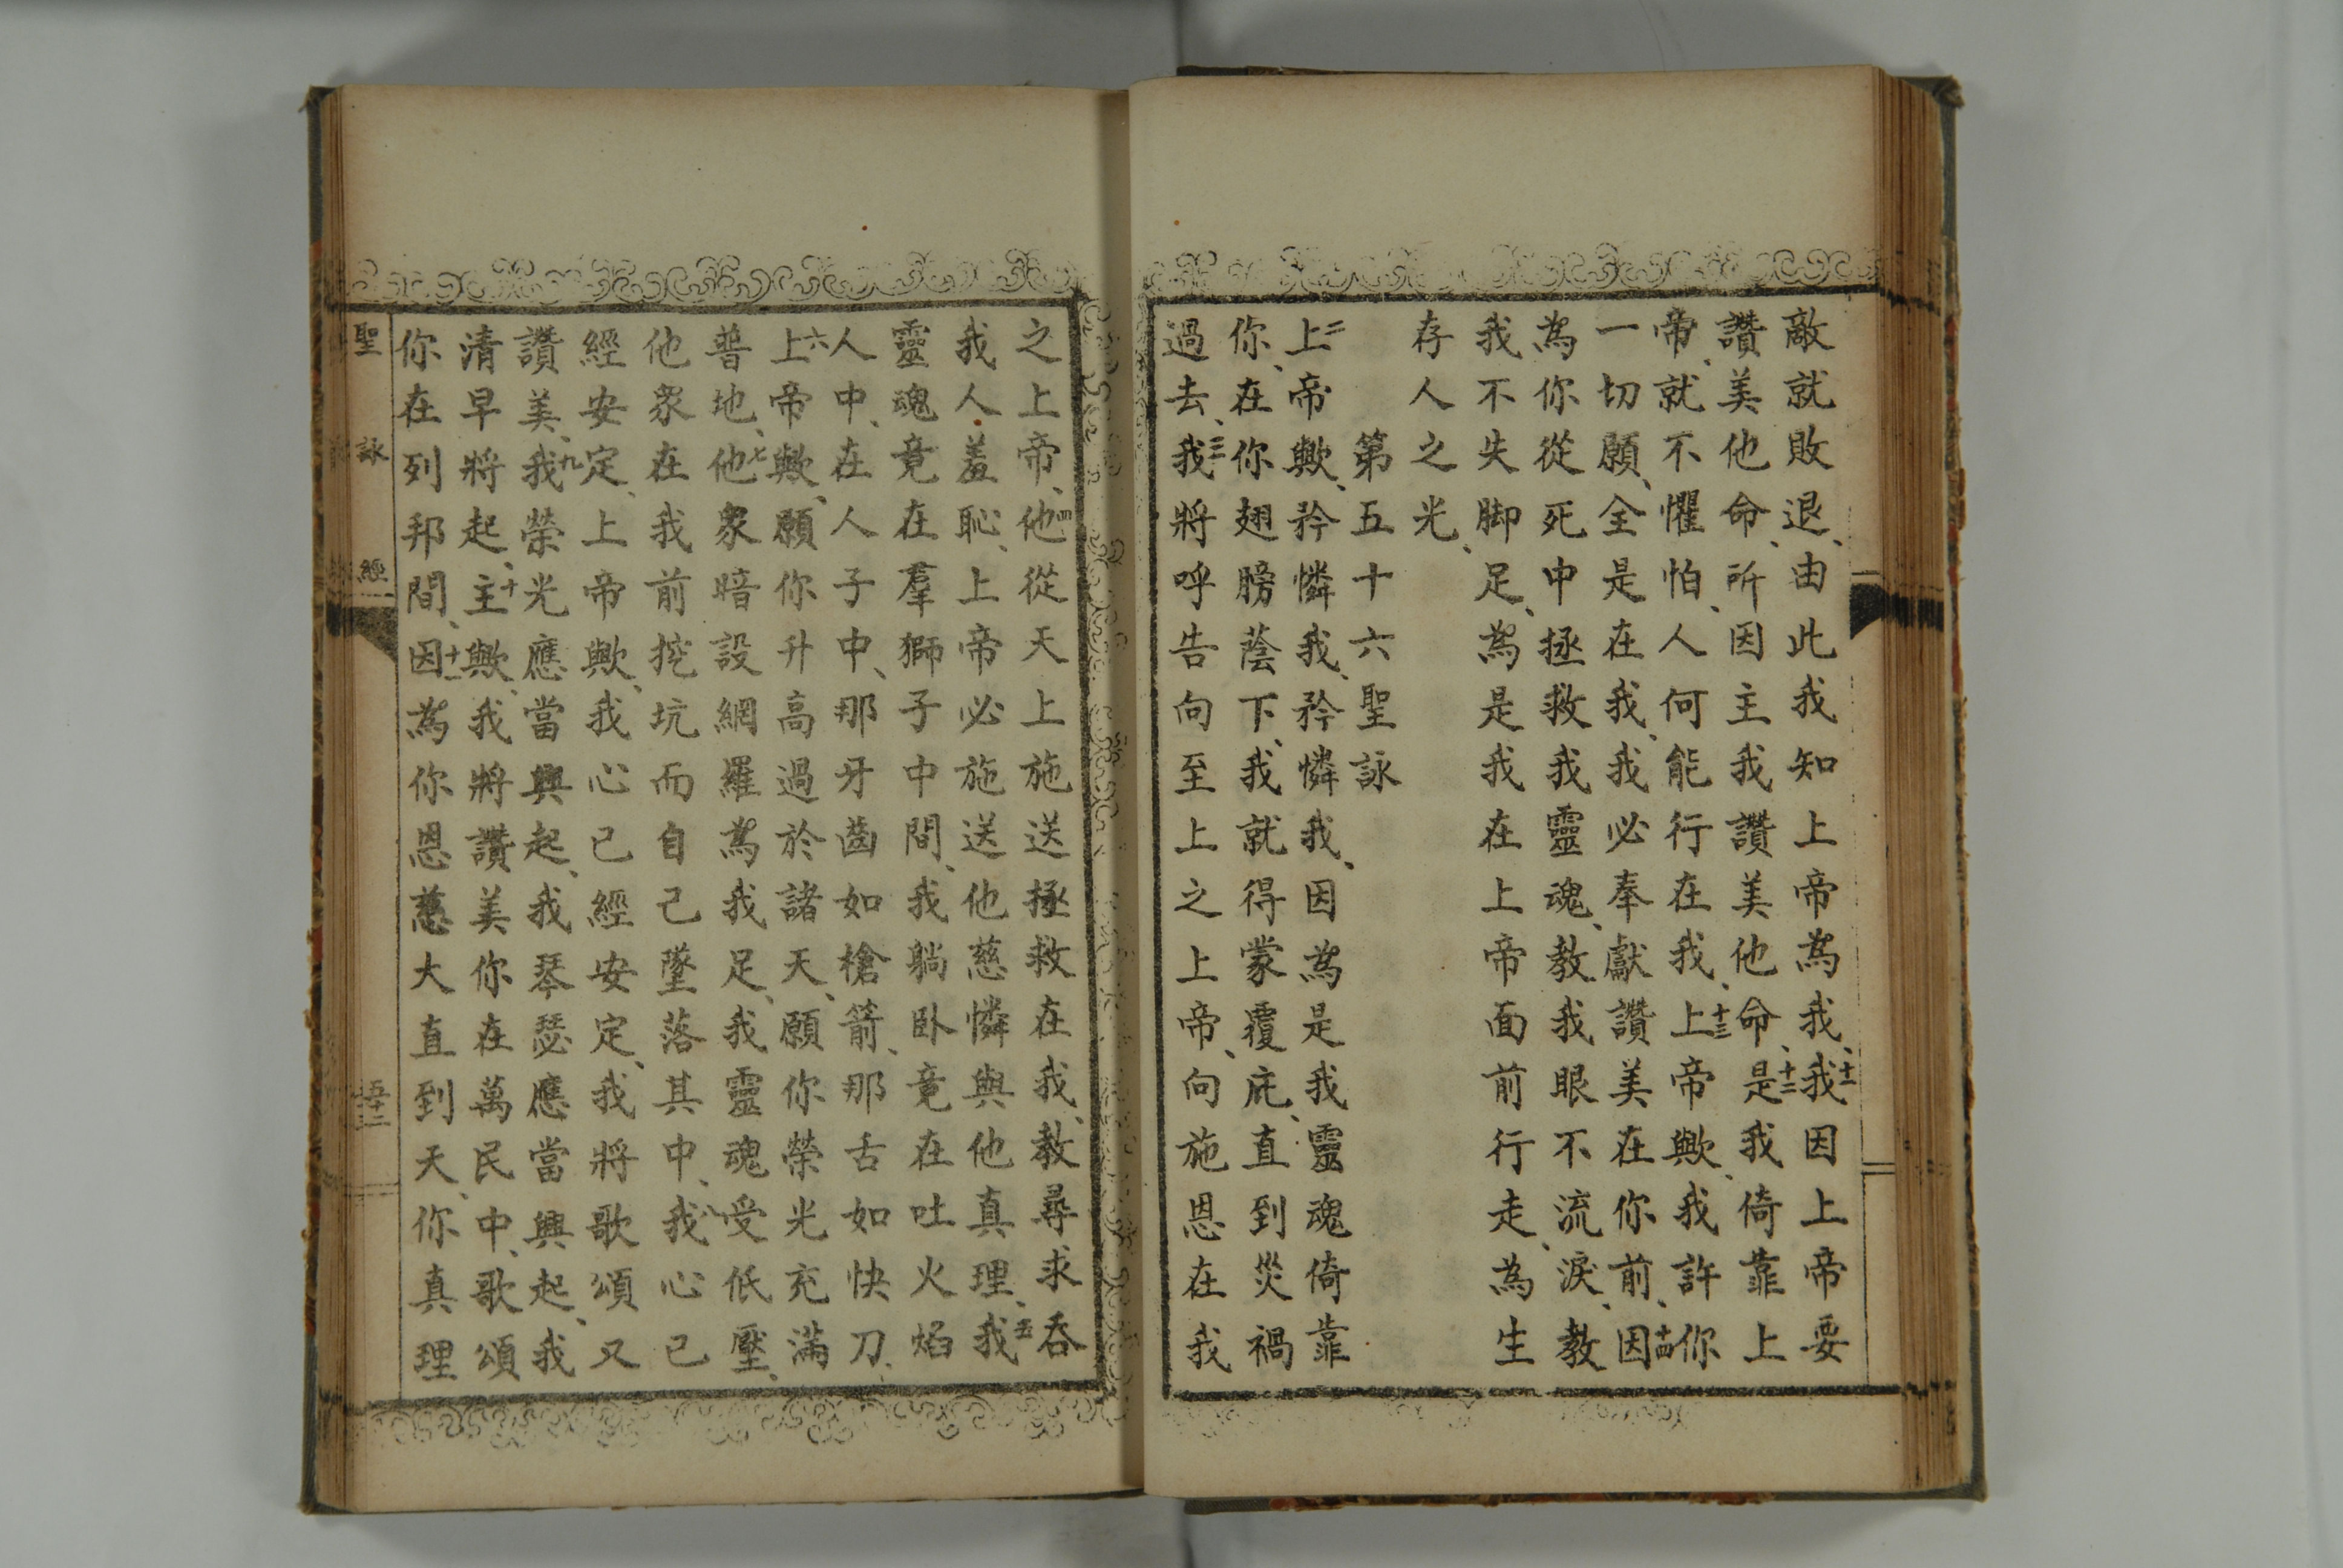 敵就敗退、由此我知上帝為我、十一我因上帝要
讚美他命、所因主我讚美他命、十二是我倚靠上
帝、就不懼怕、人何能行在我、十三上帝歟、我許你
一切願、全是在我、我必奉獻讚美在你前、十四因
為你從死中拯救我靈魂、教我眼不流淚、教
我不失脚足、為是我在上帝面前行走、為生
存人之光、
第五十六聖詠
二上帝歟、矜憐我、矜憐我、因為是我靈魂倚靠
你、在你翅膀蔭下、我就得蒙覆庇、直到災禍
過去、三我將呼告向至上之上帝、向施恩在我
之上帝、四他從天上施送拯救在我、教尋求吞
我人羞恥、上帝必施送他慈憐與他真理、五我
靈魂竟在羣獅子中間、我躺卧竟在吐火焰
人中、在人子中、那牙齒如槍箭、那舌如快刀、
六上帝歟、願你升高過於諸天、願你榮光充滿
普地、七他衆暗設網羅為我足、我靈魂受低壓、
他衆在我前挖坑而自己墜落其中、八我心已
經安定、上帝歟、我心已經安定、我將歌頌又
讚美、九我榮光應當興起、我琴瑟應當興起、我
清早將起、十主歟、我將讚美你在萬民中、歌頌
你在列邦間、十一因為你恩慈大直到天、你真理
聖詠經